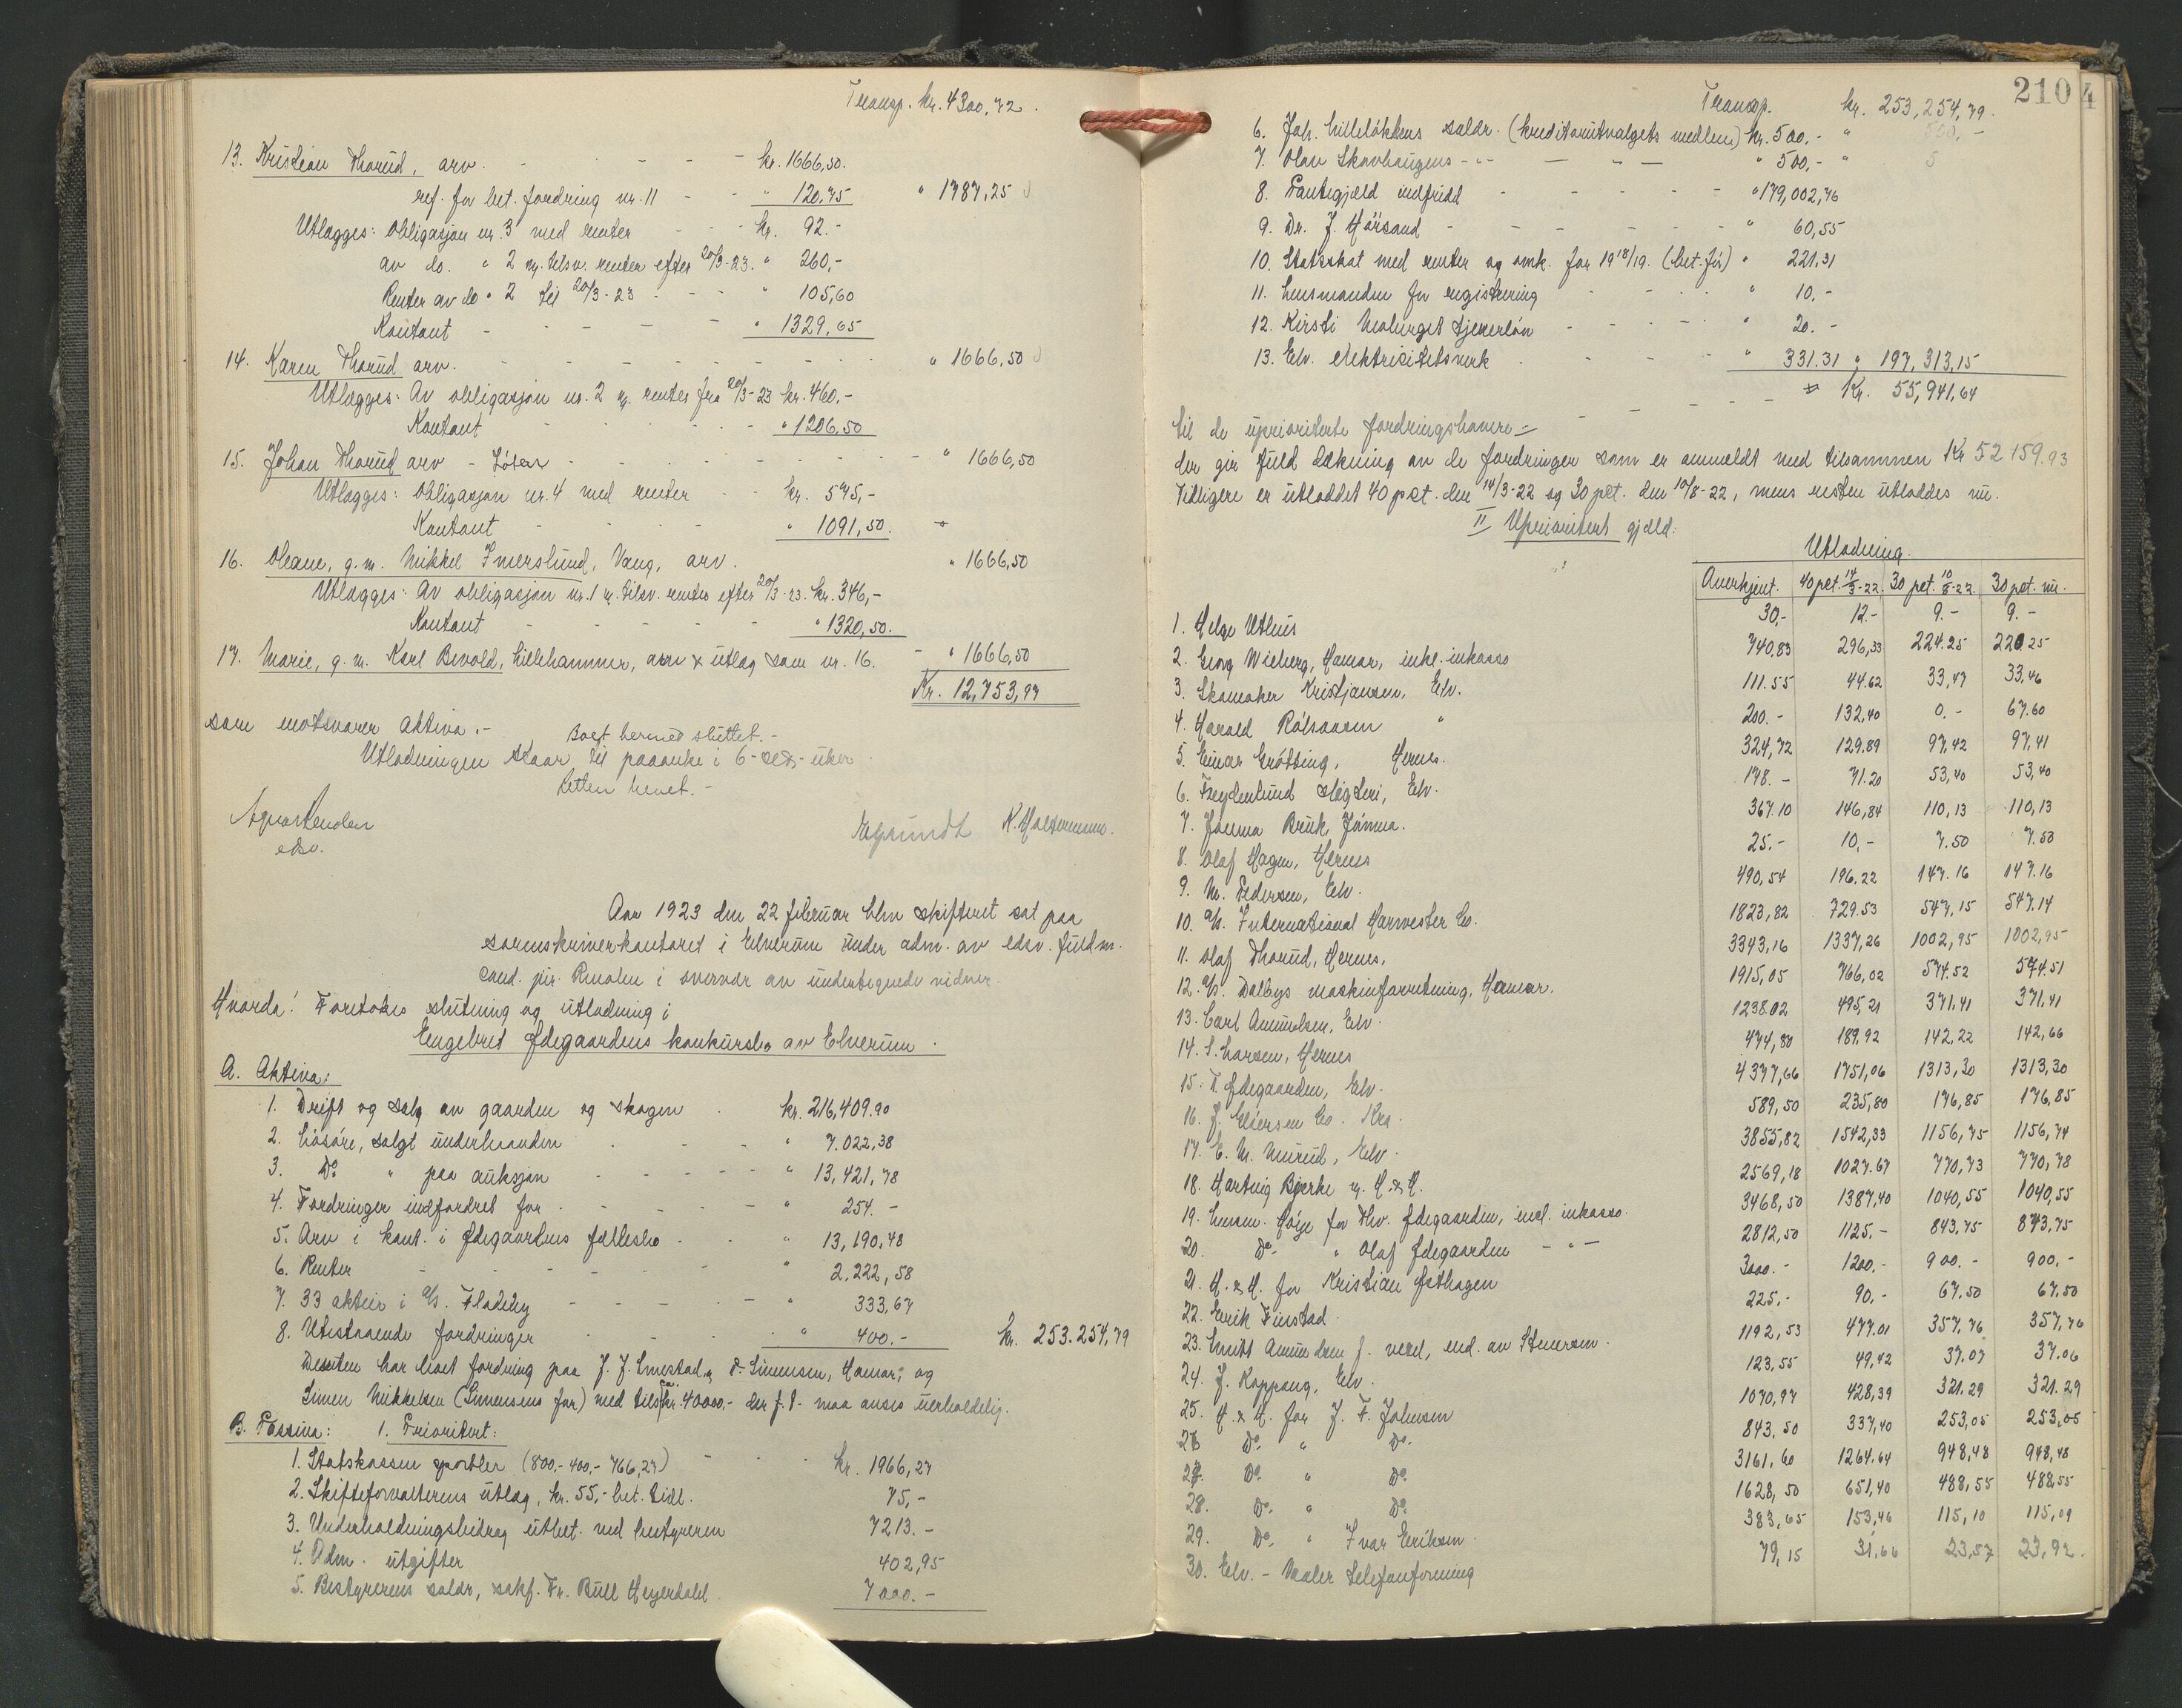 Transp. kr. 4300,72.
13. Kristian Thorud, arv. - - - - kr. 1666,50.
ref. for bet. fordring nr. 11 - - " 120,75 " 1787,25
Utlægges: Obligasjon nr. 3 med renter - - - kr. 92.-
av do. " 2 m. tilsv. renter efter 20/3-23. " 260,-
Renter av do " 2 til 20/3-23 - - - " 105,60
Kontant - - - - - " 1329,65
14. Karen Thorud arv. - - - - - - - - " 1666,50
Utlægges: Av obligasjon nr. 2 m. renter fra 20/3-23 kr. 460,-
Kontant - - - - - " 1206,50
15. Johan Thorud arv - Löten - - - - - - - - " 1666,50
Utlægges: Obligasjon nr. 4 med renter - - kr. 575,-
Kontant - - - - " 1091,50.
16. Oleane, g.m. Mikkel Imerslund, Vang, arv. " 1666,50
Utlægges: Av obligasjon nr. 1 m. tilsv. renter efter 20/3-23. kr. 346,-
Kontant - - - - - " 1320,50.
17. Marie, g.m. Karl Bevold, Lillehammer, arv & utlæg som nr. 16. - " 1666,50
Kr. 12,753,97
som motsvarer aktiva.-
Boet hermed sluttet.-
Utlodningen staar til paaanke i 6-seks-uker.
Retten hevet.-
edsv.
K. Haltermann.
Aar 1923 den 22 februar blev skifteret sat paa
sorenskriverkontoret i Elverum under adm. av edsv. fuldm.
cand. jur. Renolen i overvær av undertegnede vidner.
Hvorda! Foretokes slutning og utlodning i
Engebret Ødegaardens konkursbo av Elverum.
A. Aktiva:
1. Drift og salg av gaarden og skogen . kr. 216,409.90
2. Lösöre, solgt underhaanden - - - " 7.022,38
3. Do " paa auksjon - - - - " 13,421,78
4. Fordringer indfordret for - - - - " 254.-
5. Arv i kont. i Ødegaardens fællesbo - - " 13,190,48
6. Renter - - - - - - " 2.222,58
7. 33 aktier i A/S. Fladeby - - - - - " 333,67
8. Utestaaende fordringer - - - - " 400.- kr. 253.254,79
Desuten har boet fordring paa J. J. Emestad & O. Simensen, Hamar, og
Simen Mikkelsen (Simensens far) med tils. ca. kr. 40000.- der f. t. maa anses uerholdelig.
B. Passiva: 1. Prioritert:
1. Statskassen sportler (800,-400,-766,27) - - kr. 1966,27
2. Skifteforvalterens utlæg, kr. 55,- bet. tidl. 75,-
3. Underholdningsbidrag utbet. ved bestyreren 7213.-
4. Adm. utgifter 402,95
5. Bestyrerens salær, sakf. Fr. Bull Heyerdahl. 7000.-
2104
Transp. kr. 253,254,79.
6. Joh. Lilleløkkens salær. (kreditorutvalgets medlem) kr. 500,- "
7. Olav Skavhaugens - " - - " - " 500,- "
8. Pantegjæld indfridd - - - - - - " 179,002,76
9. Dr. J. Hörsand - - - - - - - " 60,55
10. Statsskat med renter og omk. for 1918/19. (bet. för) " 221,31
11. Lensmanden for registrering - - - " 10.-
12. Kirsti Moburget tjenerlön - - - - - " 20.-
13. Elv. elektrisitetsverk - - - " 331.31 " 197,313,15
Kr. 55,941,64
til de uprioriterte fordringshavere -
der gir fuld dækning av de fordringer som er anmeldt med tilsammen Kr 52 159.93
Tidligere er utloddet 40 pct. den 14/3-22 og 30 pct. den 10/8-22, mens resten utloddes nu.
II Uprioritert gjæld:
Utlodning.
Anerkjent. 40 pct. 14/3-22. 30 pct. 10/8-22 30 pct. nu.
1. Helge Utheus 30,- 12.- 9.- 9.-
2. Georg Wieberg, Hamar, inkl. inkasso 740,83 296,33 224.25 220.25
3. Skomaker Kristjansen, Elv. 111.55 44.62 33,47 33,46
4. Harald Rolvsasen " 200.- 132,40 0.- 67.60
5. Einar Grötting, Hernes. 324,72 129.89 97,42 97,41
6. Frydenlund slagteri, Elv. 178.- 71.20 53,40 53,40
7. Jömna Bruk, Jömna. 367.10 146,84 110,13 110,13
8. Olaf Hagen, Hernes 25.- 10,- 7.50 7.50
9. M. Pedersen, Elv. 490,54 196.22 147.16 147.16
10. A/S. International Harvester Co. 1823,82 729.53 547,15 547.14
11. Olaf Thorud, Hernes, 3343,16 1337,26 1002,95 1002,95
12. A/S. Dalbys maskinforretning, Hamar. 1915,05 766,02 574.52 574.51
13. Carl Amundsen, Elv. 1238.02 495,21 371.41 371,41
14. S. Larsen, Hernes 474,80 189.92 142,22 142,66
15. T. Ødegaarden, Elv. 4377,66 1751,06 1313,30 1313,30
16. J. Ellersen Co. Kra. 589,50 235,80 176,85 176,85
17. E. M. Murud, Elv. 3855,82 1542,33 1156,75 1156,74
18. Hartvig Bjerke v. H. & H. 2569,18 1027.67 770,73 770,78
19. Lensm. Höye for Thv. Ødegaarden, incl. inkasso. 3468,50 1387,40 1040,55 1040,55
20. Do. " Olaf Ødegaarden - " - 2812,50 1125.- 843,75 843,75
21. H. & H. for Kristian Østhagen 3000.- 1200.- 900.- 900,-
22. Erik Finstad 225,- 90.- 67.50 67.50
23. Knutt Amundsen f. vexel, end. av Stenersen. 1192,53 477.01 357,76 357,76
24. J. Koppang, Elv. 123,55 49,42 37.07 37.06
25. H. & H. for J. F. Johnsen 1070,97 428,39 321.29 321.29
26 Do. " Do. 843,50 337,40 253,05 253,05
27. Do. " Do. 3161,60 1264.64 948,48 948,48
28. Do. " Do. 1628,50 651,40 488,55 488,55
29. Do. " Ivar Eriksen. 383,65 153,46 115,10 115,09
30. Elv. - Vaaler telefonforening 79,15 31,66 23,57 23,92.